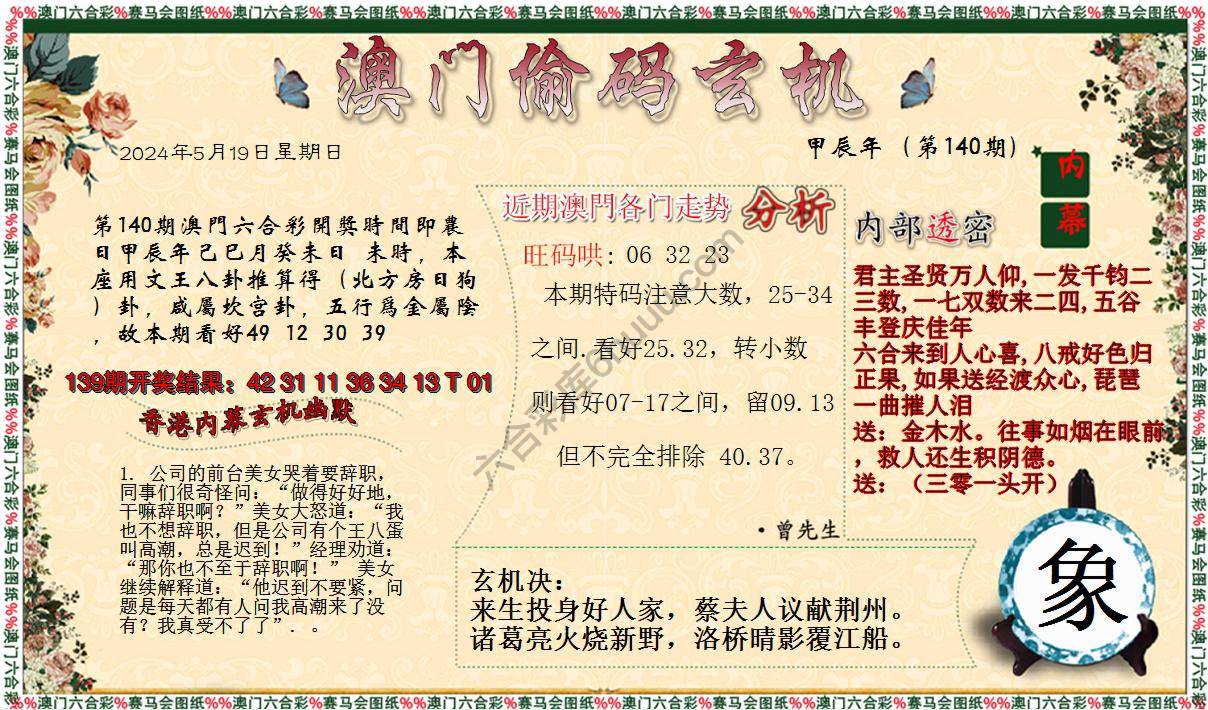 %%澳门六合彩%赛马会图纸%%澳门六合彩%赛马会图纸%%澳门六合彩%赛马会图纸%%澳门六合彩%赛马会图纸%%澳门六合彩%赛马会图纸%%澳门六合彩%赛马会图纸%%
澳门偷码玄机
2024年5月19日星期日
甲辰年（第140期）
内幕
第140期澳門六合彩開獎時間即農
日甲辰年己巳月癸未日 未時，本
座用文王八卦推算得（北方房日狗
）卦，咸屬坎宫卦，五行爲金屬陰
，故本期看好49 12 30 39
139期开奖结果：42 31 11 36 34 13 T 01
香港内幕玄机幽默
1. 公司的前台美女哭着要辞职，
同事们很奇怪问：“做得好好地，
干嘛辞职啊？”美女大怒道：“我
也不想辞职，但是公司有个王八蛋
叫高潮，总是迟到！”经理劝道：
“那你也不至于辞职啊！” 美女
继续解释道：“他迟到不要紧，问
题是每天都有人问我高潮来了没
有？我真受不了了”．。
近期澳門各门走势 分析
旺码哄: 06 32 23
本期特码注意大数，25-34
之间.看好25.32，转小数
则看好07-17之间，留09.13
但不完全排除 40.37。
·曾先生
内部透密
君主圣贤万人仰,一发千钧二
三数,一七双数来二四,五谷
丰登庆佳年
六合来到人心喜,八戒好色归
正果,如果送经渡众心,琵琶
一曲摧人泪
送：金木水。往事如烟在眼前
，救人还生积阴德。
送：（三零一头开）
玄机决：
来生投身好人家，蔡夫人议献荆州。
诸葛亮火烧新野，洛桥晴影覆江船。
象
%%澳门六合彩%赛马会图纸%%澳门六合彩%赛马会图纸%%澳门六合彩%赛马会图纸%%澳门六合彩%赛马会图纸%%澳门六合彩%赛马会图纸%%澳门六合彩%赛马会图纸%%